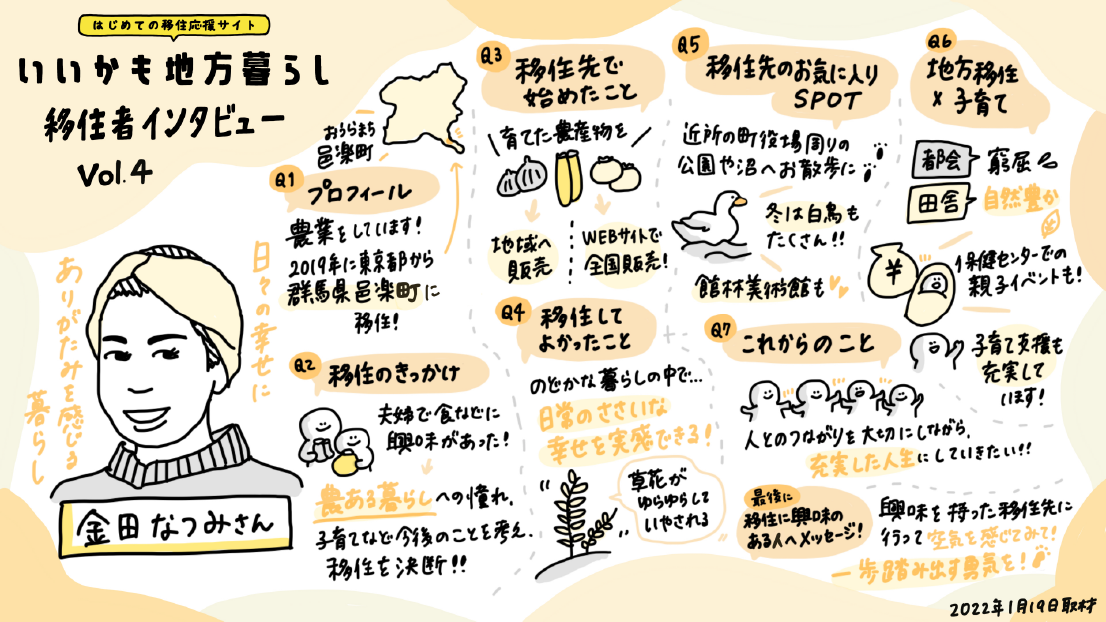 はじめての移住応援サイト
いいかも地方暮らし
移住者インタビュー
Vol.4
おうらまち
邑楽町
日々の幸せに
ありがたみを感じる
暮らし
金田なつみさん
Q1
プロフィール
農業をしています!
2019年に東京都から
群馬県邑楽町に
移住!
Q2
移住のきっかけ
夫婦で食などに
興味があった!
農ある暮らしへの憧れ、
子育てなど今後のことを考え、
移住を決断!!
Q3
移住先で
始めたこと
\育てた農産物を/
地域へ
販売
WEBサイトで
全国販売!
Q4
移住して
よかったこと
のどかな暮らしの中で…
日常のささいな
幸せを実感できる!
草花が
ゆらゆらして
いやされる
Q5
移住先のお気に入り
SPOT
近所の町役場周りの
公園や沼へお散歩に
冬は白鳥も
たくさん!!
館林美術館も
Q6
地方移住
×子育て
都会
窮屈
田舎
自然豊か
¥
保健センターでの
親子イベントも!
子育て支援も
充実して
います!
Q7
これからのこと
人とのつながりを大切にしながら、
充実した人生にしていきたい!!
最後に
移住に興味の
ある人へメッセージ!
興味を持った移住先に
行って空気を感じてみて!
一歩踏み出す勇気を!
2022年1月19日取材